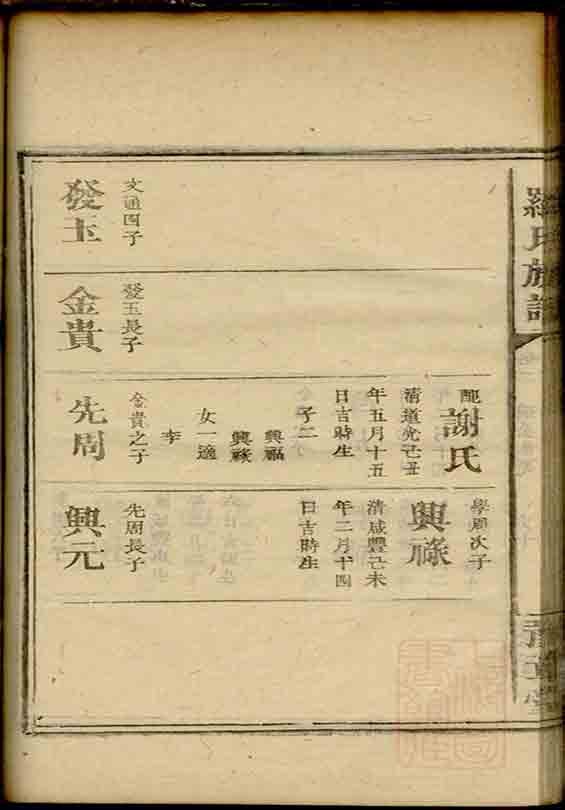 羅氏族譜
配
謝氏
清道光己丑
年五月十五
日吉時生
子二
興福
興祿
女一適
李
學周次子
興祿
清咸豐己未
年二月十四
日吉時生
文通四子
發玉
發玉長子
金貴
金貴之子
先周
先周長子
興元
堂